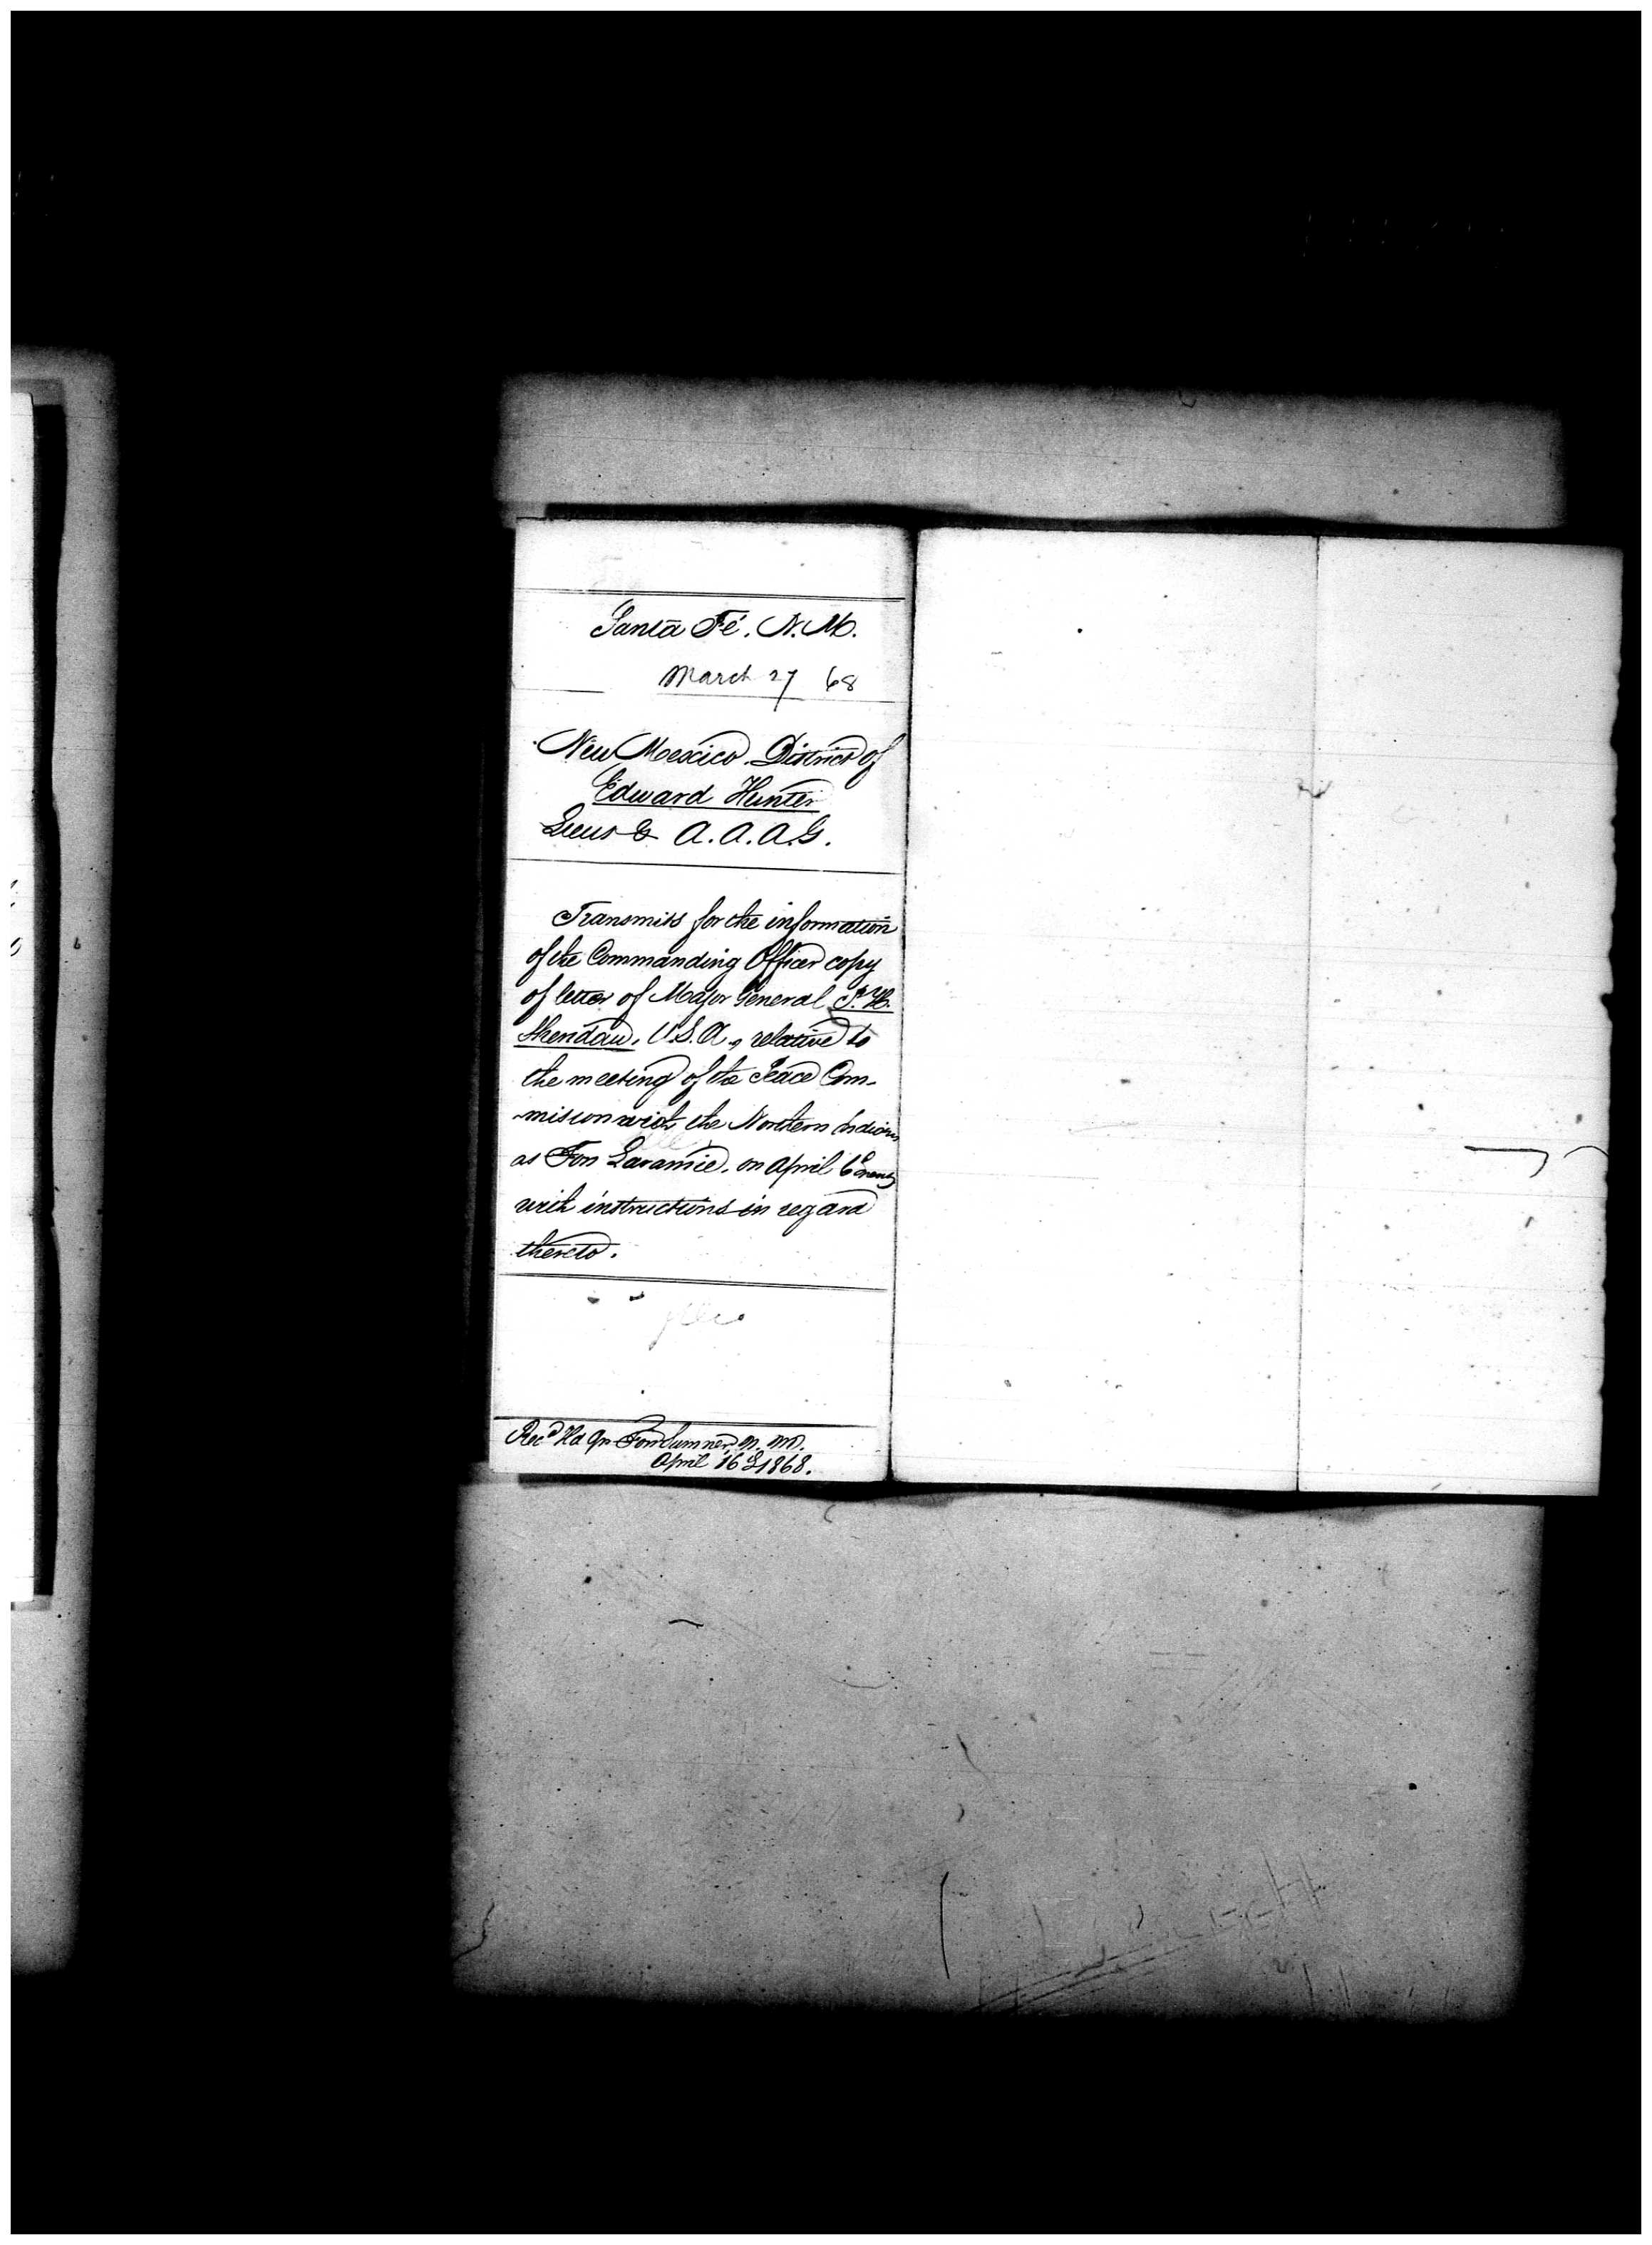 Santa Fé. N. M.
March 27 68
New Mexico. District of
Edward Hunter
Lieut & A. A. A. G.
Transmits for the information
of the Commanding Officer copy
of letter of Major General P. H.
Sheridan, U. S. A., relative to
the meeting of the Peace Com-
-mission with the Northern Indians
at Fort Laramie, on April
with instructions in regard
thereto.
Recd Hd Qrs Fort Sumner, N. M.
April 16 1868.